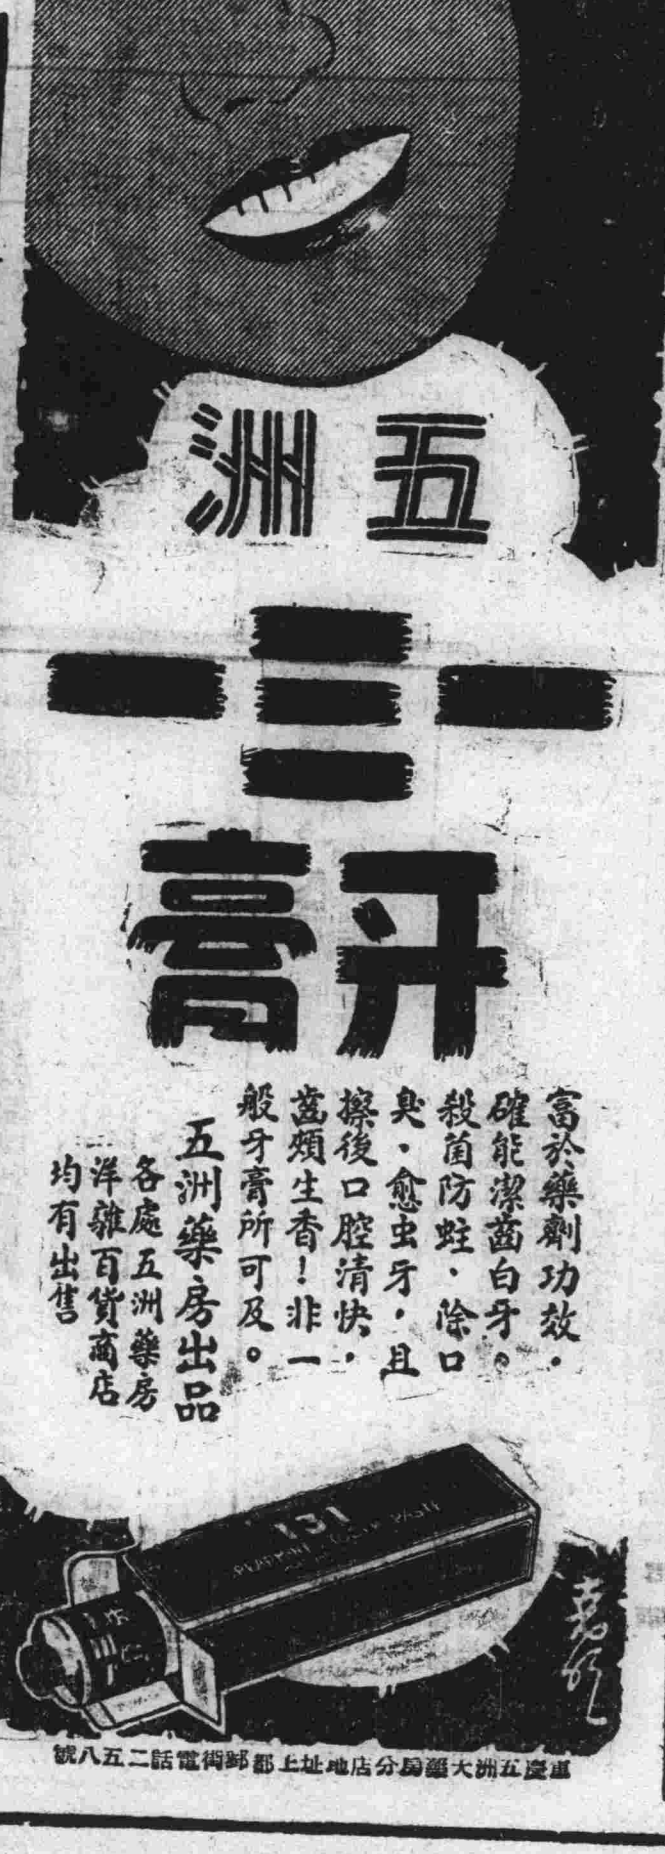 五洲
一三一
牙膏
富於藥劑功效．
確能潔齒白牙。
殺菌防蛀．除口
臭．愈虫牙．且
擦後口腔清快．
齒頰生香！非一
般牙膏所可及。
五洲藥房出品
各處五洲藥房
洋雜百貨商店
均有出售
131
TOOTH PASTE
重慶五洲大藥房分店地址上都郵街電話二五八號